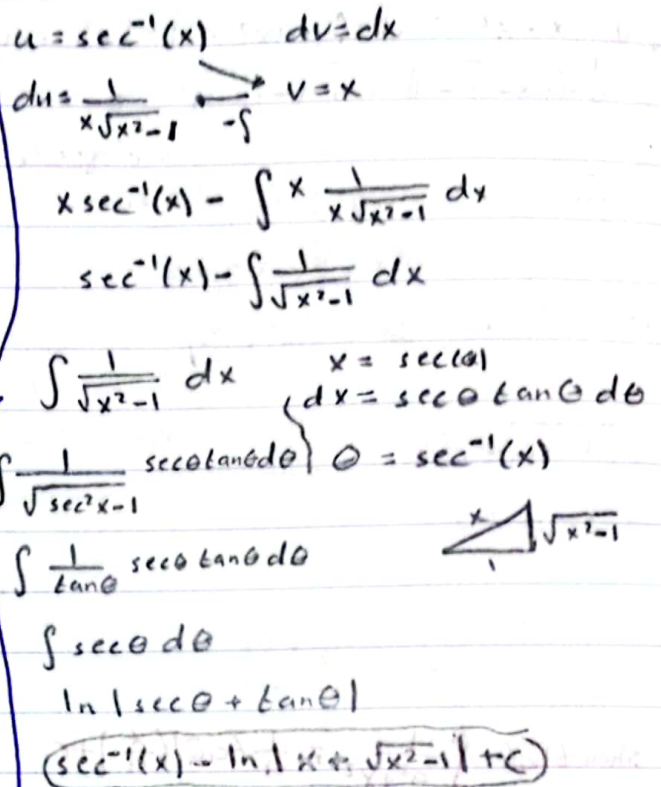 u = sec⁻¹(x) dv = dx
du = 1/(x√(x²-1)) -∫ v = x
x sec⁻¹(x) - ∫ x 1/(x√(x²-1)) dx
sec⁻¹(x) - ∫ 1/√(x²-1) dx
∫ 1/√(x²-1) dx x = sec(θ)
dx = secθ tanθ dθ
∫ 1/√(sec²x-1) secθtanθdθ θ = sec⁻¹(x)
x √(x²-1)
1
∫ 1/tanθ secθ tanθ dθ
∫ secθ dθ
ln |secθ + tanθ|
sec⁻¹(x) - ln | x + √(x²-1) | + C